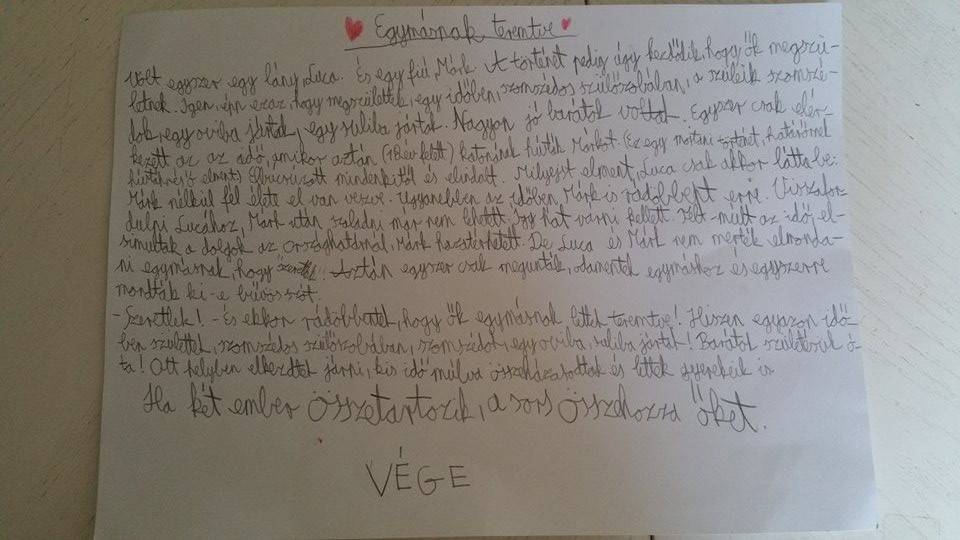 Egymásnak teremtve
Volt egyszer egy lány, Luca. És egy fiú, Márk. A történet pedig úgy kezdődik, hogy ők megszü-
lettek. Igen, épp ez az, hogy megszülettek, egy időben, szomszédos szülőszobában, a szüleik szomszé-
dok, egy oviba jártak, egy suliba jártak. Nagyon jó barátok voltak. Egyszer csak elér-
kezett az az idő, amikor aztán (18 év felett) katonának hívták Márkot. (Ez egy mostani történet, határőrnek
hívták és ő elment) Elbúcsúzott mindenkitől és elindult. Mihelyst elment, Luca csak akkor látta be:
Márk nélkül fél élete el van veszve. Ugyanebben az időben, Márk is rádöbbent erre. Visszafor-
dulni Lucához, Márk után szaladni már nem lehetett. Így hát várni kellett. Telt-múlt az idő, el-
simultak a dolgok az országhatárnál, Márk hazatérhetett. De Luca és Márk nem merték elmonda-
ni egymásnak, hogy Aztán egyszer csak megunták, odamentek egymáshoz és egyszerre
mondták ki-e bűvös szót.
- Szeretlek! - És ekkor rádöbbentek, hogy ők egymásnak lettek teremtve! Hiszen egyazon idő-
ben születtek, szomszédos szülőszobában, szomszédok, egy oviba, suliba jártak! Barátok születésük ó-
ta! Ott helyben elkezdtek járni, kis idő múlva összeházasodtak és lettek gyerekeik is
Ha két ember összetartozik, a sors összehozza őket.
VÉGE